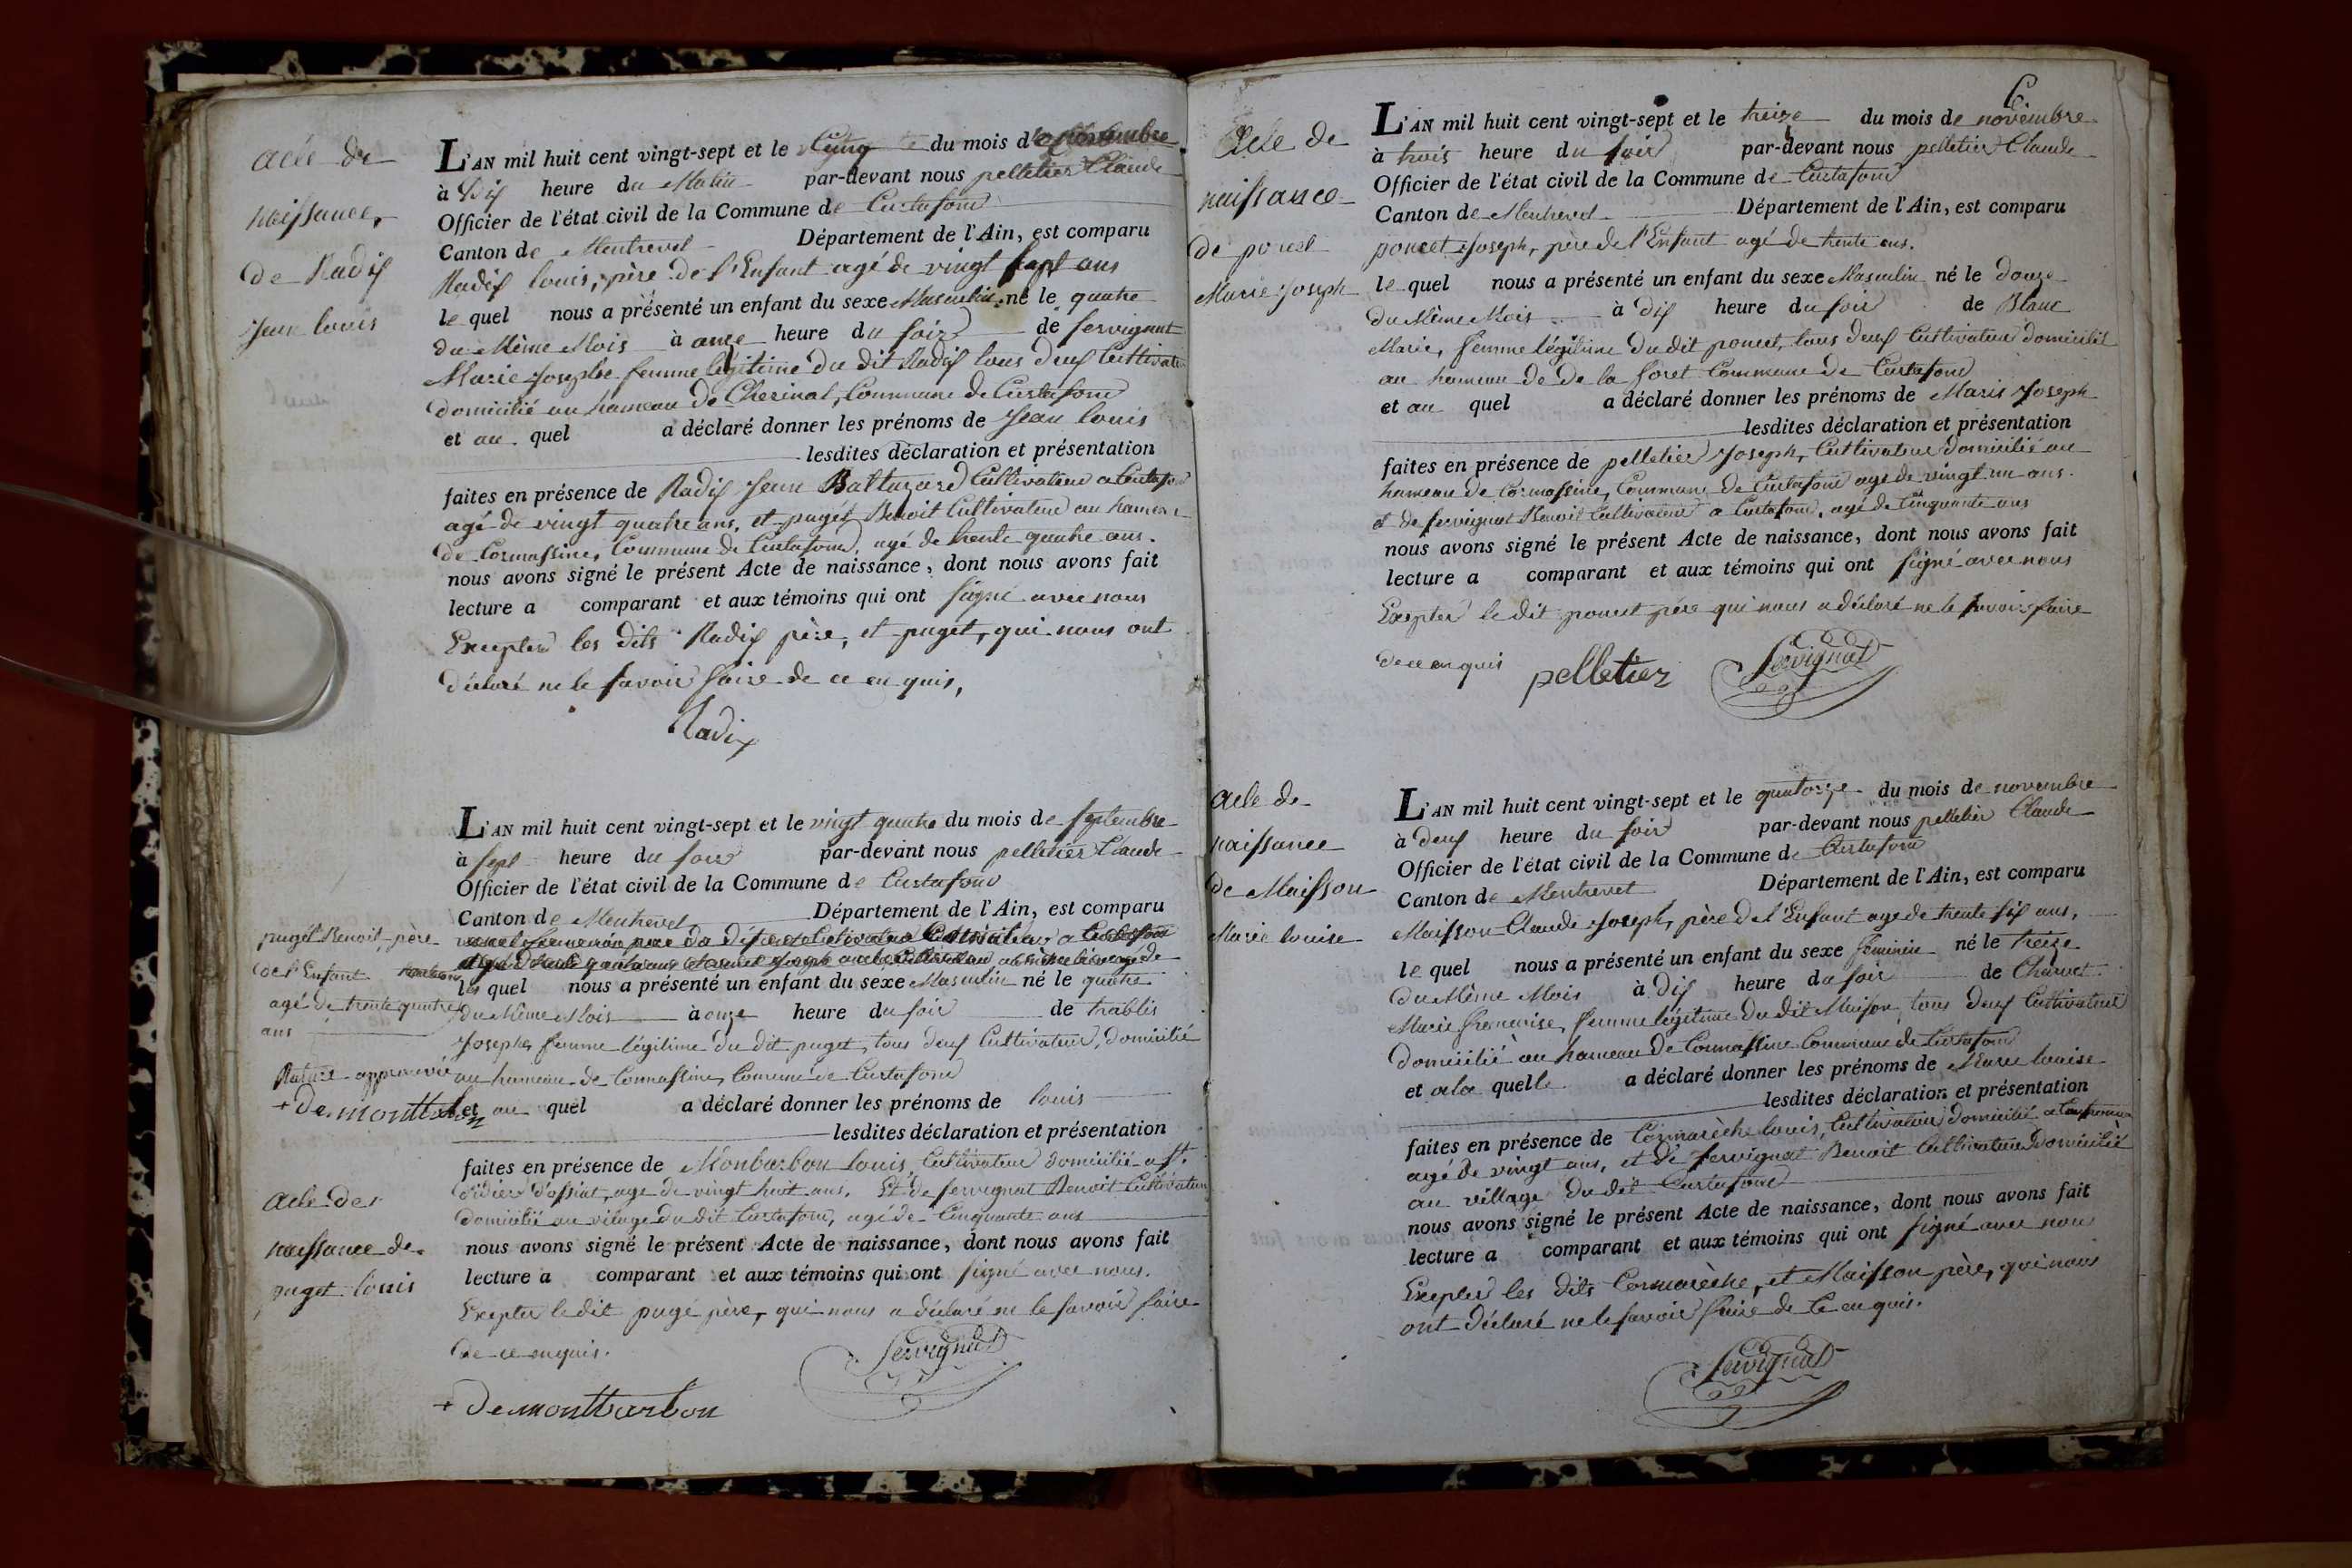 acte de
naissance,
de Radix
Jean louis
L'AN mil huit cent vingt-sept et le Cinq du mois de
à Dix heure du Matin par-devant nous pelletier Claude
Officier de l'état civil de la Commune de Curtafond
Canton de Montrevel Département de l'Ain, est comparu
Radix louis, père de l'Enfant agé de vingt sept ans
le quel nous a présenté un enfant du sexe Masculin né le quatre
du Même Mois à onze heure du soir de servignat
Marie Josephe femme légitime du dit Radix tous deux Cultivateur
domicilié au hameau de Cherinal, Commune de Curtafond
et au quel a déclaré donner les prénoms de Jean louis
lesdites déclaration et présentation
faites en présence de Radix Jean Baltazard Cultivateur a Curtafond
agé de vingt quatre ans, et puget Benoit Cultivateur au hameau
de Cormassine, Commune de Curtafond, agé de trente quatre ans.
nous avons signé le présent Acte de naissance, dont nous avons fait
lecture a comparant et aux témoins qui ont signé avec nous
Excepter les dits Radix père, et puget, qui nous ont
déclaré ne le savoir faire de ce enquis,
Radix
puget Benoit père
de l'Enfant
agé de trente quatre
ans
Rature approuvée
+ de montbarbon
acte de
naissance de
puget louis
L'AN mil huit cent vingt-sept et le vingt quatre du mois de septembre
à sept heure du soir par-devant nous pelletier Claude
Officier de l'état civil de la Commune de Curtafond
Canton de Montrevel Département de l'Ain, est comparu
les quel nous a présenté un enfant du sexe Masculin né le quatre
du Même Mois à onze heure du soir de trablis
Josephe, femme légitime du dit puget, tous deux Cultivateur, domicilié
au hameau de Cormassine, Comune de Curtafond
et au quel a déclaré donner les prénoms de louis
lesdites déclaration et présentation
faites en présence de Monbarbon louis, Cultivateur domicilié a st.
didier d'assiat, age de vingt huit ans. Et de servignat Benoit Cultivateur
domicilié au vilage du dit Curtafond, agé de Cinquante ans
nous avons signé le présent Acte de naissance, dont nous avons fait
lecture a comparant et aux témoins qui ont signé avec nous.
Excepter le dit pugé père, qui nous a déclaré ne le savoir faire
de ce enquis.
Servignat
+ de montbarbon
6
Acte de
naissance
de poncet
Marie Joseph
L'AN mil huit cent vingt-sept et le treize du mois de novembre
à trois heure du soir par-devant nous pelletier Claude
Officier de l'état civil de la Commune de Curtafond
Canton de Montrevel Département de l'Ain, est comparu
poncet Joseph, père de l'Enfant agé de trente ans.
le quel nous a présenté un enfant du sexe Masculin né le douze
du Même Mois à dix heure du soir de Blanc
Marie, femme légitime du dit poncet, tous deux Cultivateur domicilié
au hameau de de la foret Commune de Curtafond
et au quel a déclaré donner les prénoms de Marie Joseph
lesdites déclaration et présentation
faites en présence de pelletier Joseph, Cultivateur domicilié au
hameau de Cormassine, Commune de Curtafond agé de vingt un ans.
et de servignat Benoit Cultivateur a Curtafond, agé de Cinquante ans
nous avons signé le présent Acte de naissance, dont nous avons fait
lecture a comparant et aux témoins qui ont signé avec nous
Excepter le dit poncet père qui nous a déclaré ne le savoir faire
de ce enquis
pelletier Servignat
acte de
naissance
de Maisson
Marie louise
L'AN mil huit cent vingt-sept et le quatorze du mois de novembre
à deux heure du soir par-devant nous pelletier Claude
Officier de l'état civil de la Commune de Curtafond
Canton de Montrevel Département de l'Ain, est comparu
Maisson Claude Joseph, père de l'Enfant age de trente six ans,
le quel nous a présenté un enfant du sexe féminin né le treize
du Même Mois à Dix heure du soir de Charvet
Marie francoise, femme légitime du dit Maison, tous deux Cultivateur
domicilié au hameau de Cormassine Commune de Curtafond
et a la quelle a déclaré donner les prénoms de Marie louise
lesdites déclaration et présentation
faites en présence de Cormarèche louis, Cultivateur domicilié a
agé de vingt ans, et de servignat Benoit Cultivateur domicilié
au village du dit Curtafond
nous avons signé le présent Acte de naissance, dont nous avons fait
lecture a comparant et aux témoins qui ont signé avec nous
Excepter les dits Cormarèche, et Maisson père, qui nous
ont déclaré ne le savoir faire de Ce enquis.
Servignat